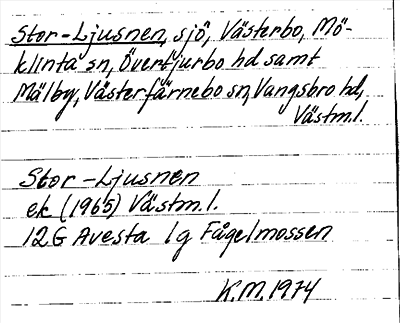 Stor-Ljusnen, sjö, Västerbo, Mö-
klinta sn, Övertjurbo hd samt
Mälby, Västerfärnebo sn, Vangsbro hd,
Västm.l.
Stor-Ljusnen
ek (1965) Västm.l.
12G Avesta 1g Fågelmossen
K.M. 1974